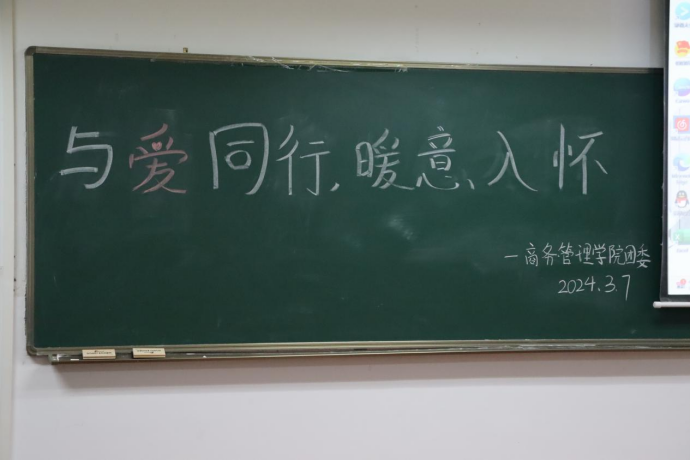 与爱同行,暖意入怀
一商务管理学院团委
2024.3.7